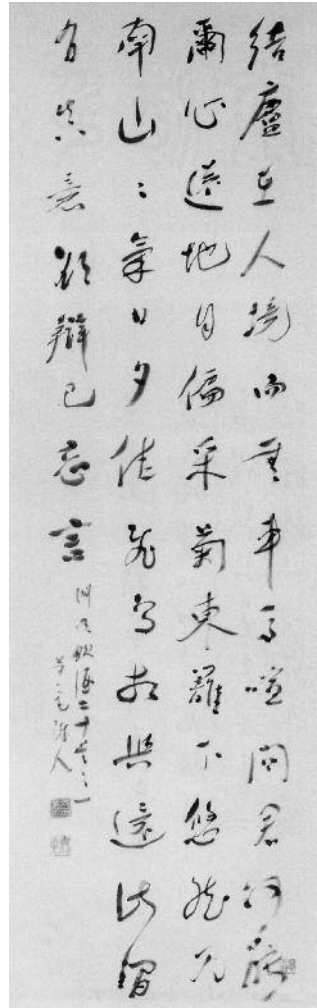 結廬在人境而無車馬喧問君何能
爾心遠地自偏采菊東籬下悠然見
南山〻氣日夕佳飛鳥相與還此間
有真意欲辯已忘言
淵明飲酒二十首之一